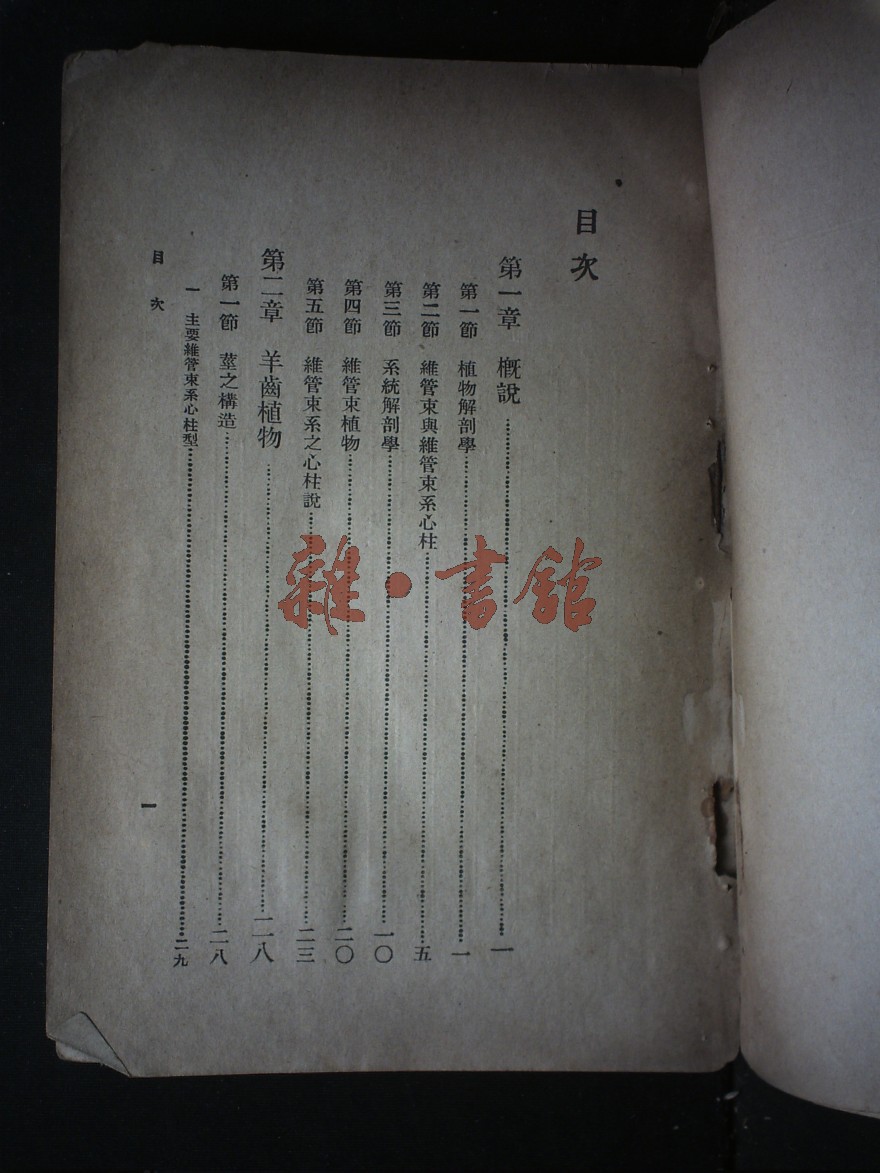 目次
第一章 概說 一
第一節 植物解剖學 一
第二節 維管束與維管束系心柱 五
第三節 系統解剖學 一〇
第四節 維管束植物 二〇
第五節 維管束系之心柱說 二三
第二章 羊齒植物 二八
第一節 莖之構造 二八
一 主要維管束系心柱型 二九
目次 一
雜·書館